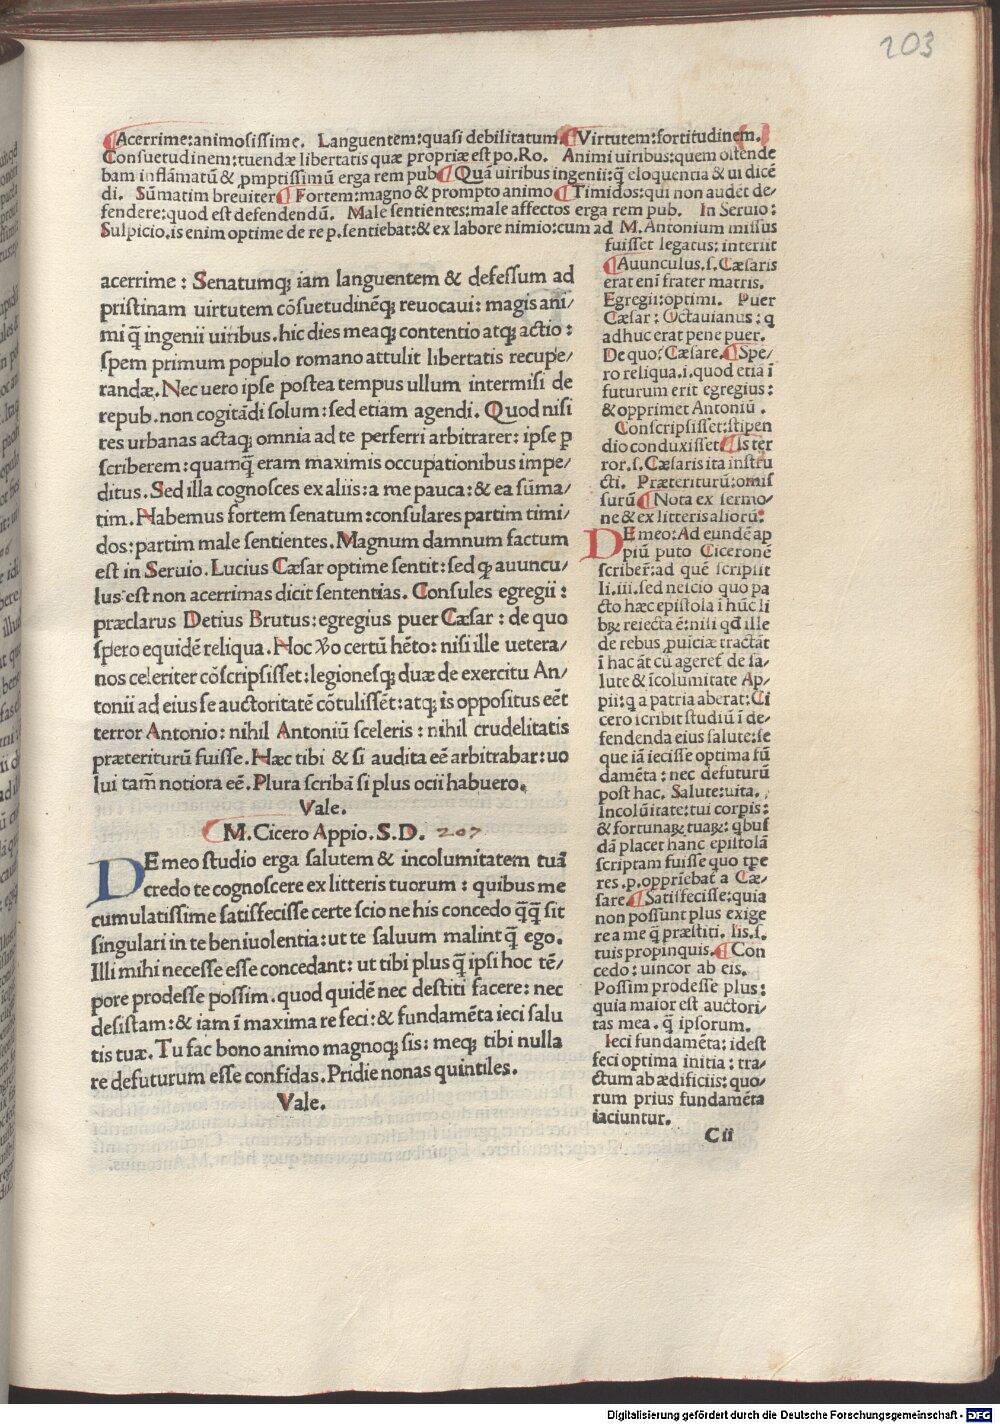 203
¶Acerrime:animosissime. Languentem:quasi debilitatum.¶Virtutem:fortitudinem.
Consuetudinem:tuendæ libertatis quæ propriæ est po.Ro. Animi uiribus:quem ostende
bam inflāmatū & ꝓmptissimū erga rem pub.¶Quā uiribus ingenii:q̄ eloquentia & ui dicē
di. Sūmatim breuiter¶Fortem:magno & prompto animo¶Timidos:qui non audēt de/
fendere:quod est defendendū. Male sentientes:male affectos erga rem pub. In Seruio:
Sulpicio.is enim optime de re p.sentiebat:& ex labore nimio:cum ad M.Antonium missus
fuisset legatus: interiit
acerrime: Senatumqꝫ iam languentem & defessum ad
pristinam uirtutem cōsuetudinēqꝫ reuocaui: magis ani/
mi q̄ ingenii uiribus.hic dies meaqꝫ contentio atqꝫ actio:
spem primum populo romano attulit libertatis recupe/
randæ. Nec uero ipse postea tempus ullum intermisi de
repub.non cogitādi solum:sed etiam agendi. Quod nisi
res urbanas actaqꝫ omnia ad te perferri arbitrarer: ipse ꝑ
scriberem:quamq̄ eram maximis occupationibus impe/
ditus. Sed illa cognosces ex aliis: a me pauca:& ea sūma/
tim. Habemus fortem senatum:consulares partim timi/
dos:partim male sentientes. Magnum damnum factum
est in Seruio. Lucius Cæsar optime sentit: sed ꝙ auuncu/
lus est non acerrimas dicit sententias. Consules egregii:
præclarus Detius Brutus:egregius puer Cæsar: de quo
spero equidē reliqua. Hoc ꝟo certū hēto: nisi ille uetera/
nos celeriter cōscripsisset:legionesqꝫ duæ de exercitu An/
tonii ad eius se auctoritatē cōtulissēt:atqꝫ is oppositus eēt
terror Antonio: nihil Antoniū sceleris: nihil crudelitatis
præteriturū fuisse. Hæc tibi & si audita eē arbitrabar: uo
lui tam̄ notiora eē. Plura scribā si plus ocii habuero.
Vale.
¶M.Cicero Appio.S.D. 207
DE meo studio erga salutem & incolumitatem tuā
credo te cognoscere ex litteris tuorum: quibus me
cumulatissime satisfecisse certe scio ne his concedo q̄q̄ sit
singulari in te beniuolentia: ut te saluum malint q̄ ego.
Illi mihi necesse esse concedant: ut tibi plus q̄ ipsi hoc tē/
pore prodesse possim.quod quidē nec destiti facere: nec
desistam:& iam ī maxima re feci:& fundamēta ieci salu
tis tuæ. Tu fac bono animo magnoqꝫ sis: meqꝫ tibi nulla
re defuturum esse confidas. Pridie nonas quintiles.
Vale.
¶Auunculus.s.Cæsaris
erat enī frater matris.
Egregii:optimi. Puer
Cæsar: Octauianus: q
adhuc erat pene puer.
De quo:Cæsare.¶Spe/
ro reliqua.i.quod etiā ī
futurum erit egregius:
& opprimet Antoniū.
Conscripsisset:stipen
dio conduxisset¶Is ter
ror.s.Cæsaris ita instru
cti. Præteriturū:omis
surū¶Nota ex sermo/
ne & ex litteris aliorū:
DE meo:Ad eundē ap
piū puto Ciceronē
scriber:ad quē scripsit
li.iii.sed nescio quo pa
cto hæc epistola ī hūc li
bꝝ reiecta ē:nisi qđ ille
de rebus ꝓuīciæ tractāt
ī hac āt cū ageret de sa/
lute & īcolumitate Ap/
pii:q a patria aberat:Ci
cero scribit studiū ī de/
fendenda eius salute:se
que iā iecisse optima fū
damēta: nec defuturū
post hac. Salute:uita.
Incolūitate:tui corpis:
& fortunaꝝ tuaꝝ: qbus
dā placet hanc epistolā
scriptam fuisse quo tpe
res.p.opprīebat a Cæ/
sare.¶Satisfecisse:quia
non possunt plus exige
re a me q̄ præstiti. Iis.s.
tuis propinquis.¶Con
cedo: uincor ab eis.
Possim prodesse plus:
quia maior est auctori/
tas mea. q̄ ipsorum.
Ieci fundamēta: idest
feci optima initia: tra/
ctum ab ædificiis: quo/
rum prius fundamēta
iaciuntur.
Cii
Digitalisierung gefördert durch die Deutsche Forschungsgemeinschaft - DFG